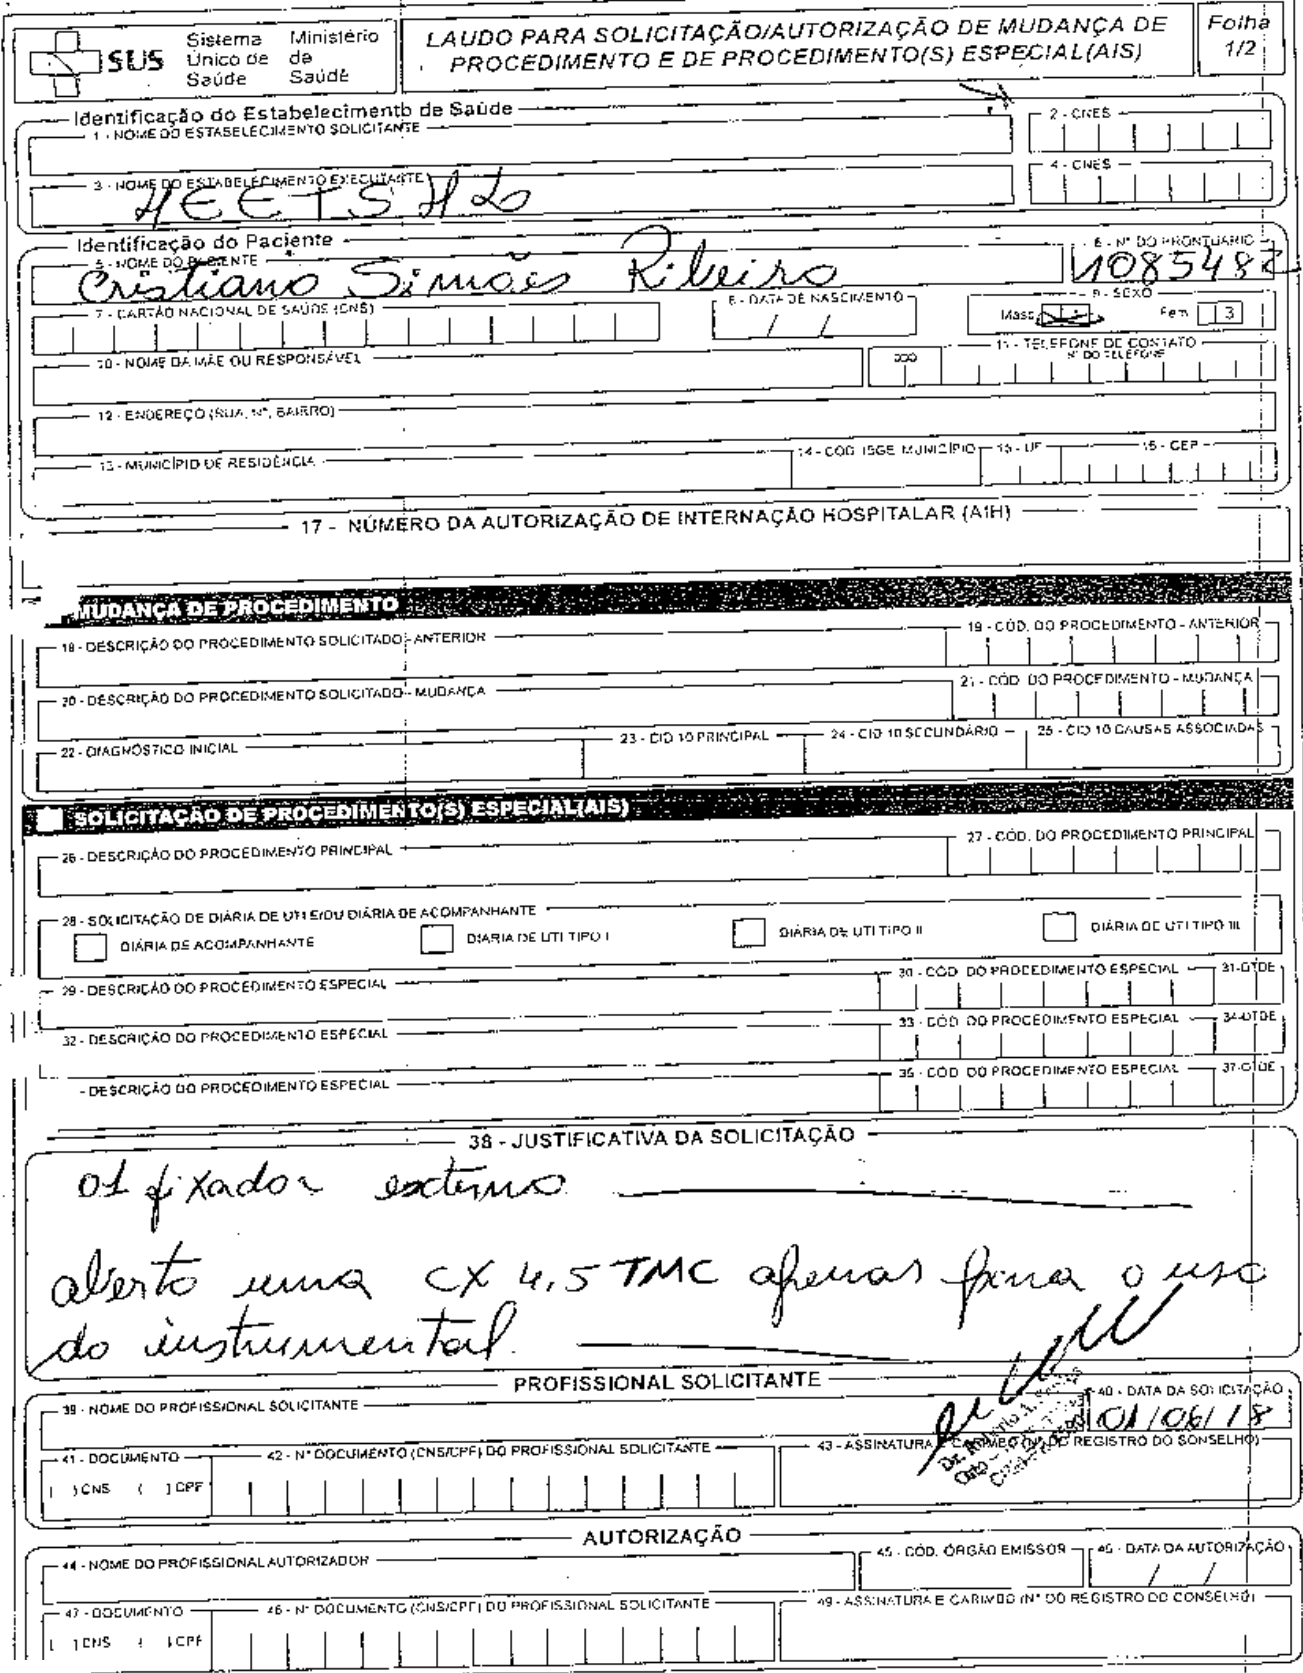 SUS
Sistema Único de Saúde
Ministério da Saúde
LAUDO PARA SOLICITAÇÃO/AUTORIZAÇÃO DE MUDANÇA DE
PROCEDIMENTO E DE PROCEDIMENTO(S) ESPECIAL(AIS)
Folha
1/2
Identificação do Estabelecimento de Saúde
1 - NOME DO ESTABELECIMENTO SOLICITANTE
2 - CNES
3 - NOME DO ESTABELECIMENTO EXECUTANTE
4 - CNES
HEETSHL
Identificação do Paciente
5 - NOME DO PACIENTE
6 - N° DO PRONTUÁRIO
Cristiano Simões Ribeiro
1085482
7 - CARTÃO NACIONAL DE SAÚDE (CNS)
8 - DATA DE NASCIMENTO
9 - SEXO
/ /
Masc
Fem 3
10 - NOME DA MÃE OU RESPONSÁVEL
11 - TELEFONE DE CONTATO
DDD
N° DO TELEFONE
12 - ENDEREÇO (RUA, N°, BAIRRO)
13 - MUNICÍPIO DE RESIDÊNCIA
14 - COD. IBGE MUNICÍPIO
15 - UF
16 - CEP
17 - NÚMERO DA AUTORIZAÇÃO DE INTERNAÇÃO HOSPITALAR (AIH)
MUDANÇA DE PROCEDIMENTO
18 - DESCRIÇÃO DO PROCEDIMENTO SOLICITADO - ANTERIOR
19 - CÓD. DO PROCEDIMENTO - ANTERIOR
20 - DESCRIÇÃO DO PROCEDIMENTO SOLICITADO - MUDANÇA
21 - CÓD. DO PROCEDIMENTO - MUDANÇA
22 - DIAGNÓSTICO INICIAL
23 - CID 10 PRINCIPAL
24 - CID 10 SECUNDÁRIO
25 - CID 10 CAUSAS ASSOCIADAS
SOLICITAÇÃO DE PROCEDIMENTO(S) ESPECIAL(AIS)
26 - DESCRIÇÃO DO PROCEDIMENTO PRINCIPAL
27 - CÓD. DO PROCEDIMENTO PRINCIPAL
28 - SOLICITAÇÃO DE DIÁRIA DE UTI E/OU DIÁRIA DE ACOMPANHANTE
DIÁRIA DE ACOMPANHANTE
DIÁRIA DE UTI TIPO I
DIÁRIA DE UTI TIPO II
DIÁRIA DE UTI TIPO III
29 - DESCRIÇÃO DO PROCEDIMENTO ESPECIAL
30 - CÓD. DO PROCEDIMENTO ESPECIAL
31-QTDE
32 - DESCRIÇÃO DO PROCEDIMENTO ESPECIAL
33 - CÓD. DO PROCEDIMENTO ESPECIAL
34-QTDE
- DESCRIÇÃO DO PROCEDIMENTO ESPECIAL
36 - CÓD. DO PROCEDIMENTO ESPECIAL
37-QTDE
38 - JUSTIFICATIVA DA SOLICITAÇÃO
01 fixador externo
aberto uma CX 4,5 TMC apenas para o uso
do instrumental.
PROFISSIONAL SOLICITANTE
39 - NOME DO PROFISSIONAL SOLICITANTE
40 - DATA DA SOLICITAÇÃO
01/06/18
41 - DOCUMENTO
42 - N° DOCUMENTO (CNS/CPF) DO PROFISSIONAL SOLICITANTE
43 - ASSINATURA E CARIMBO (N° DO REGISTRO DO CONSELHO)
( ) CNS ( ) CPF
AUTORIZAÇÃO
44 - NOME DO PROFISSIONAL AUTORIZADOR
45 - CÓD. ÓRGÃO EMISSOR
46 - DATA DA AUTORIZAÇÃO
/ /
47 - DOCUMENTO
48 - N° DOCUMENTO (CNS/CPF) DO PROFISSIONAL SOLICITANTE
49 - ASSINATURA E CARIMBO (N° DO REGISTRO DO CONSELHO)
( ) CNS ( ) CPF